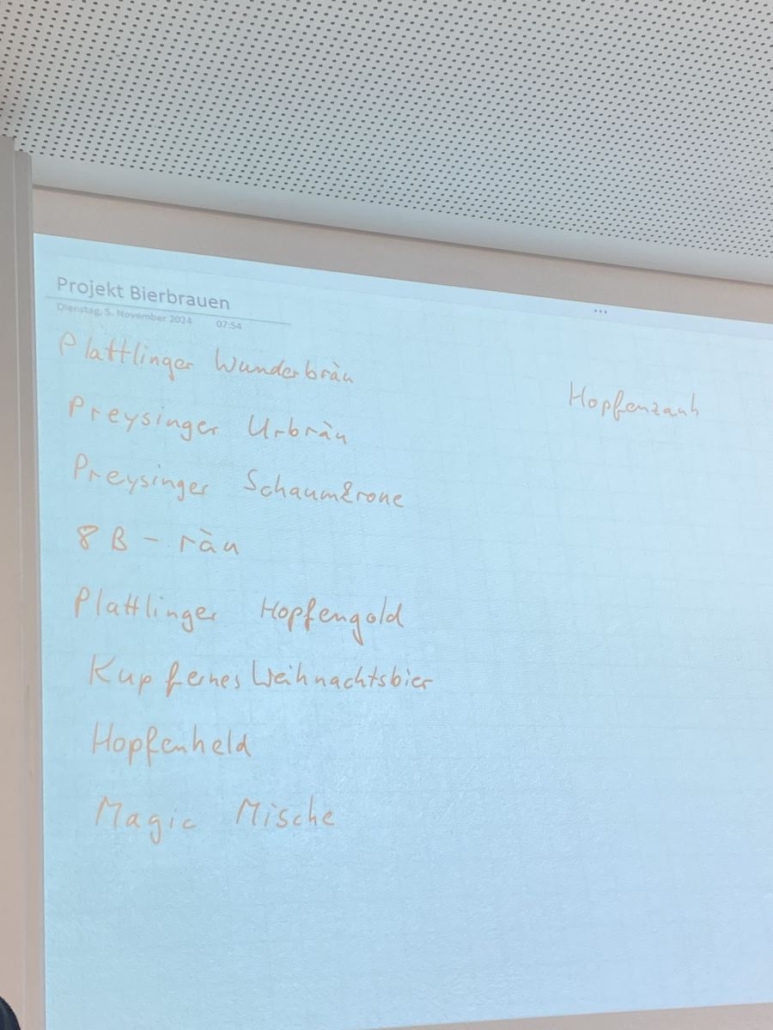 Projekt Bierbrauen
Dienstag, 5. November 2024 07:54
Plattlinger Wunderbräu
Hopfenzauh
Preysinger Urbräu
Preysinger Schaumkrone
8B - räu
Plattlinger Hopfengold
Kupfernes Weihnachtsbier
Hopfenheld
Magic Mische